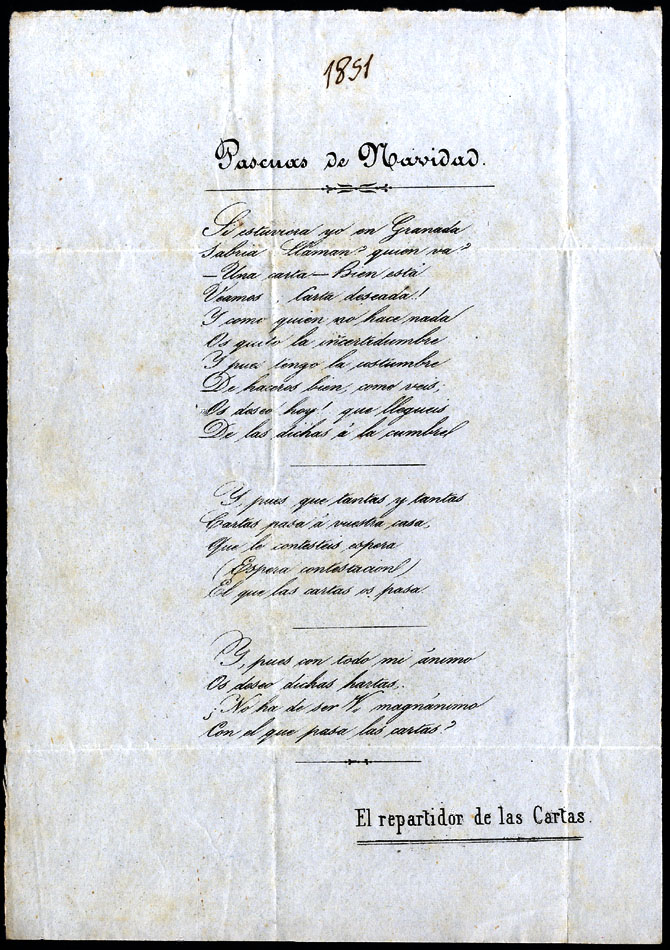 1851
Pascuas de Navidad.
Si estuviera yo en Granada
Sabria ¿Llaman? quien va?
—Una carta— Bien está
Veamos ¡Carta deseada!
Y como quien no hace nada
Os quito la incertidumbre
Y pues tengo la costumbre
De haceros bien, como veis,
Os deseo hoy! que llegueis
De las dichas á la cumbre!
Y, pues que tantas y tantas
Cartas pasa á vuestra casa,
Que le contesteis espera
(Espera contestacion)
El que las cartas os pasa.
Y, pues con todo mi ánimo
Os deseo dichas hartas,
¿No ha de ser V. magnánimo
Con el que pasa las cartas?
El repartidor de las Cartas.